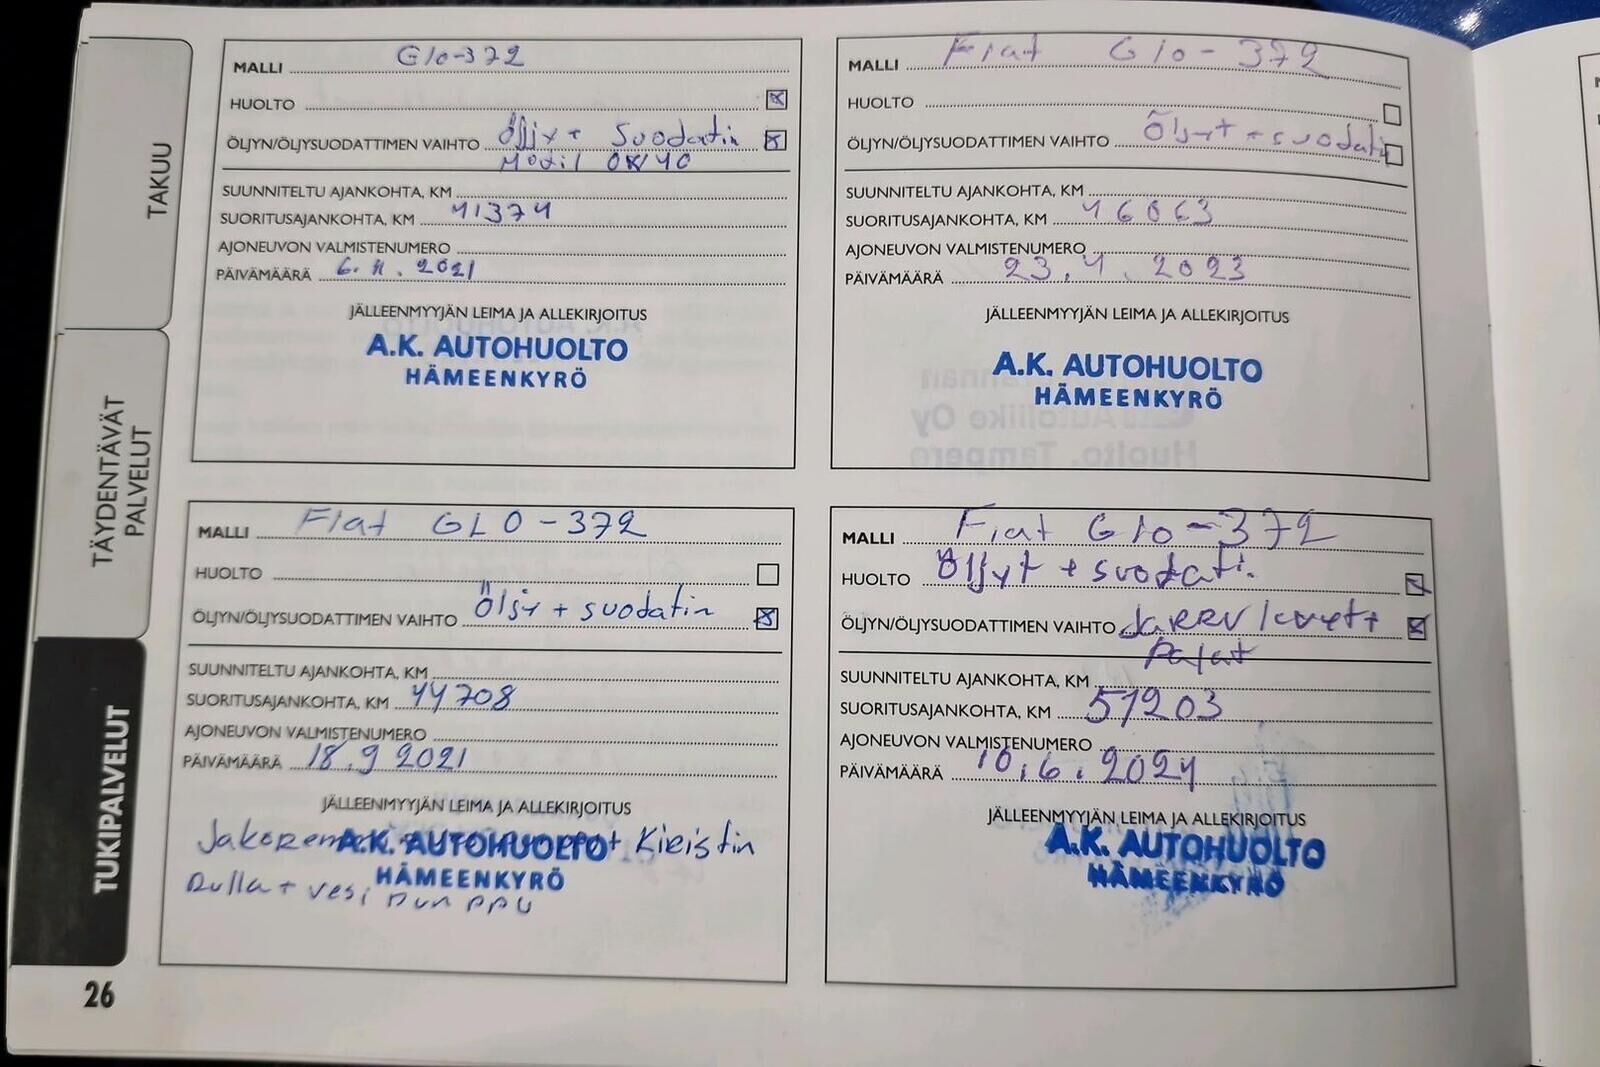 TAKUU
TÄYDENTÄVÄT
PALVELUT
TUKIPALVELUT
MALLI Glo-372
HUOLTO
ÖLJYN/ÖLJYSUODATTIMEN VAIHTO Öljyt + Suodatin
SUUNNITELTU AJANKOHTA, KM
SUORITUSAJANKOHTA, KM 41374
AJONEUVON VALMISTENUMERO
PÄIVÄMÄÄRÄ 2021
JÄLLEENMYYJÄN LEIMA JA ALLEKIRJOITUS
A.K. AUTOHUOLTO
HÄMEENKYRÖ
MALLI Fiat Glo-372
HUOLTO
ÖLJYN/ÖLJYSUODATTIMEN VAIHTO Öljyt + suodatin
SUUNNITELTU AJANKOHTA, KM
SUORITUSAJANKOHTA, KM 46063
AJONEUVON VALMISTENUMERO
PÄIVÄMÄÄRÄ 23.4.2023
JÄLLEENMYYJÄN LEIMA JA ALLEKIRJOITUS
A.K. AUTOHUOLTO
HÄMEENKYRÖ
MALLI Fiat GLO-372
HUOLTO
ÖLJYN/ÖLJYSUODATTIMEN VAIHTO Öljy + suodatin
SUUNNITELTU AJANKOHTA, KM
SUORITUSAJANKOHTA, KM 44708
AJONEUVON VALMISTENUMERO
PÄIVÄMÄÄRÄ 18.9 2021
JÄLLEENMYYJÄN LEIMA JA ALLEKIRJOITUS
A.K. AUTOHUOLTO Kiristin
HÄMEENKYRÖ
Rulla + vesi pumppu
MALLI Fiat Glo-372
HUOLTO Öljyt + suodati.
ÖLJYN/ÖLJYSUODATTIMEN VAIHTO Jarru
Palat
SUUNNITELTU AJANKOHTA, KM
SUORITUSAJANKOHTA, KM 51203
AJONEUVON VALMISTENUMERO
PÄIVÄMÄÄRÄ 10.6.2024
JÄLLEENMYYJÄN LEIMA JA ALLEKIRJOITUS
A.K. AUTOHUOLTO
HÄMEENKYRÖ
26